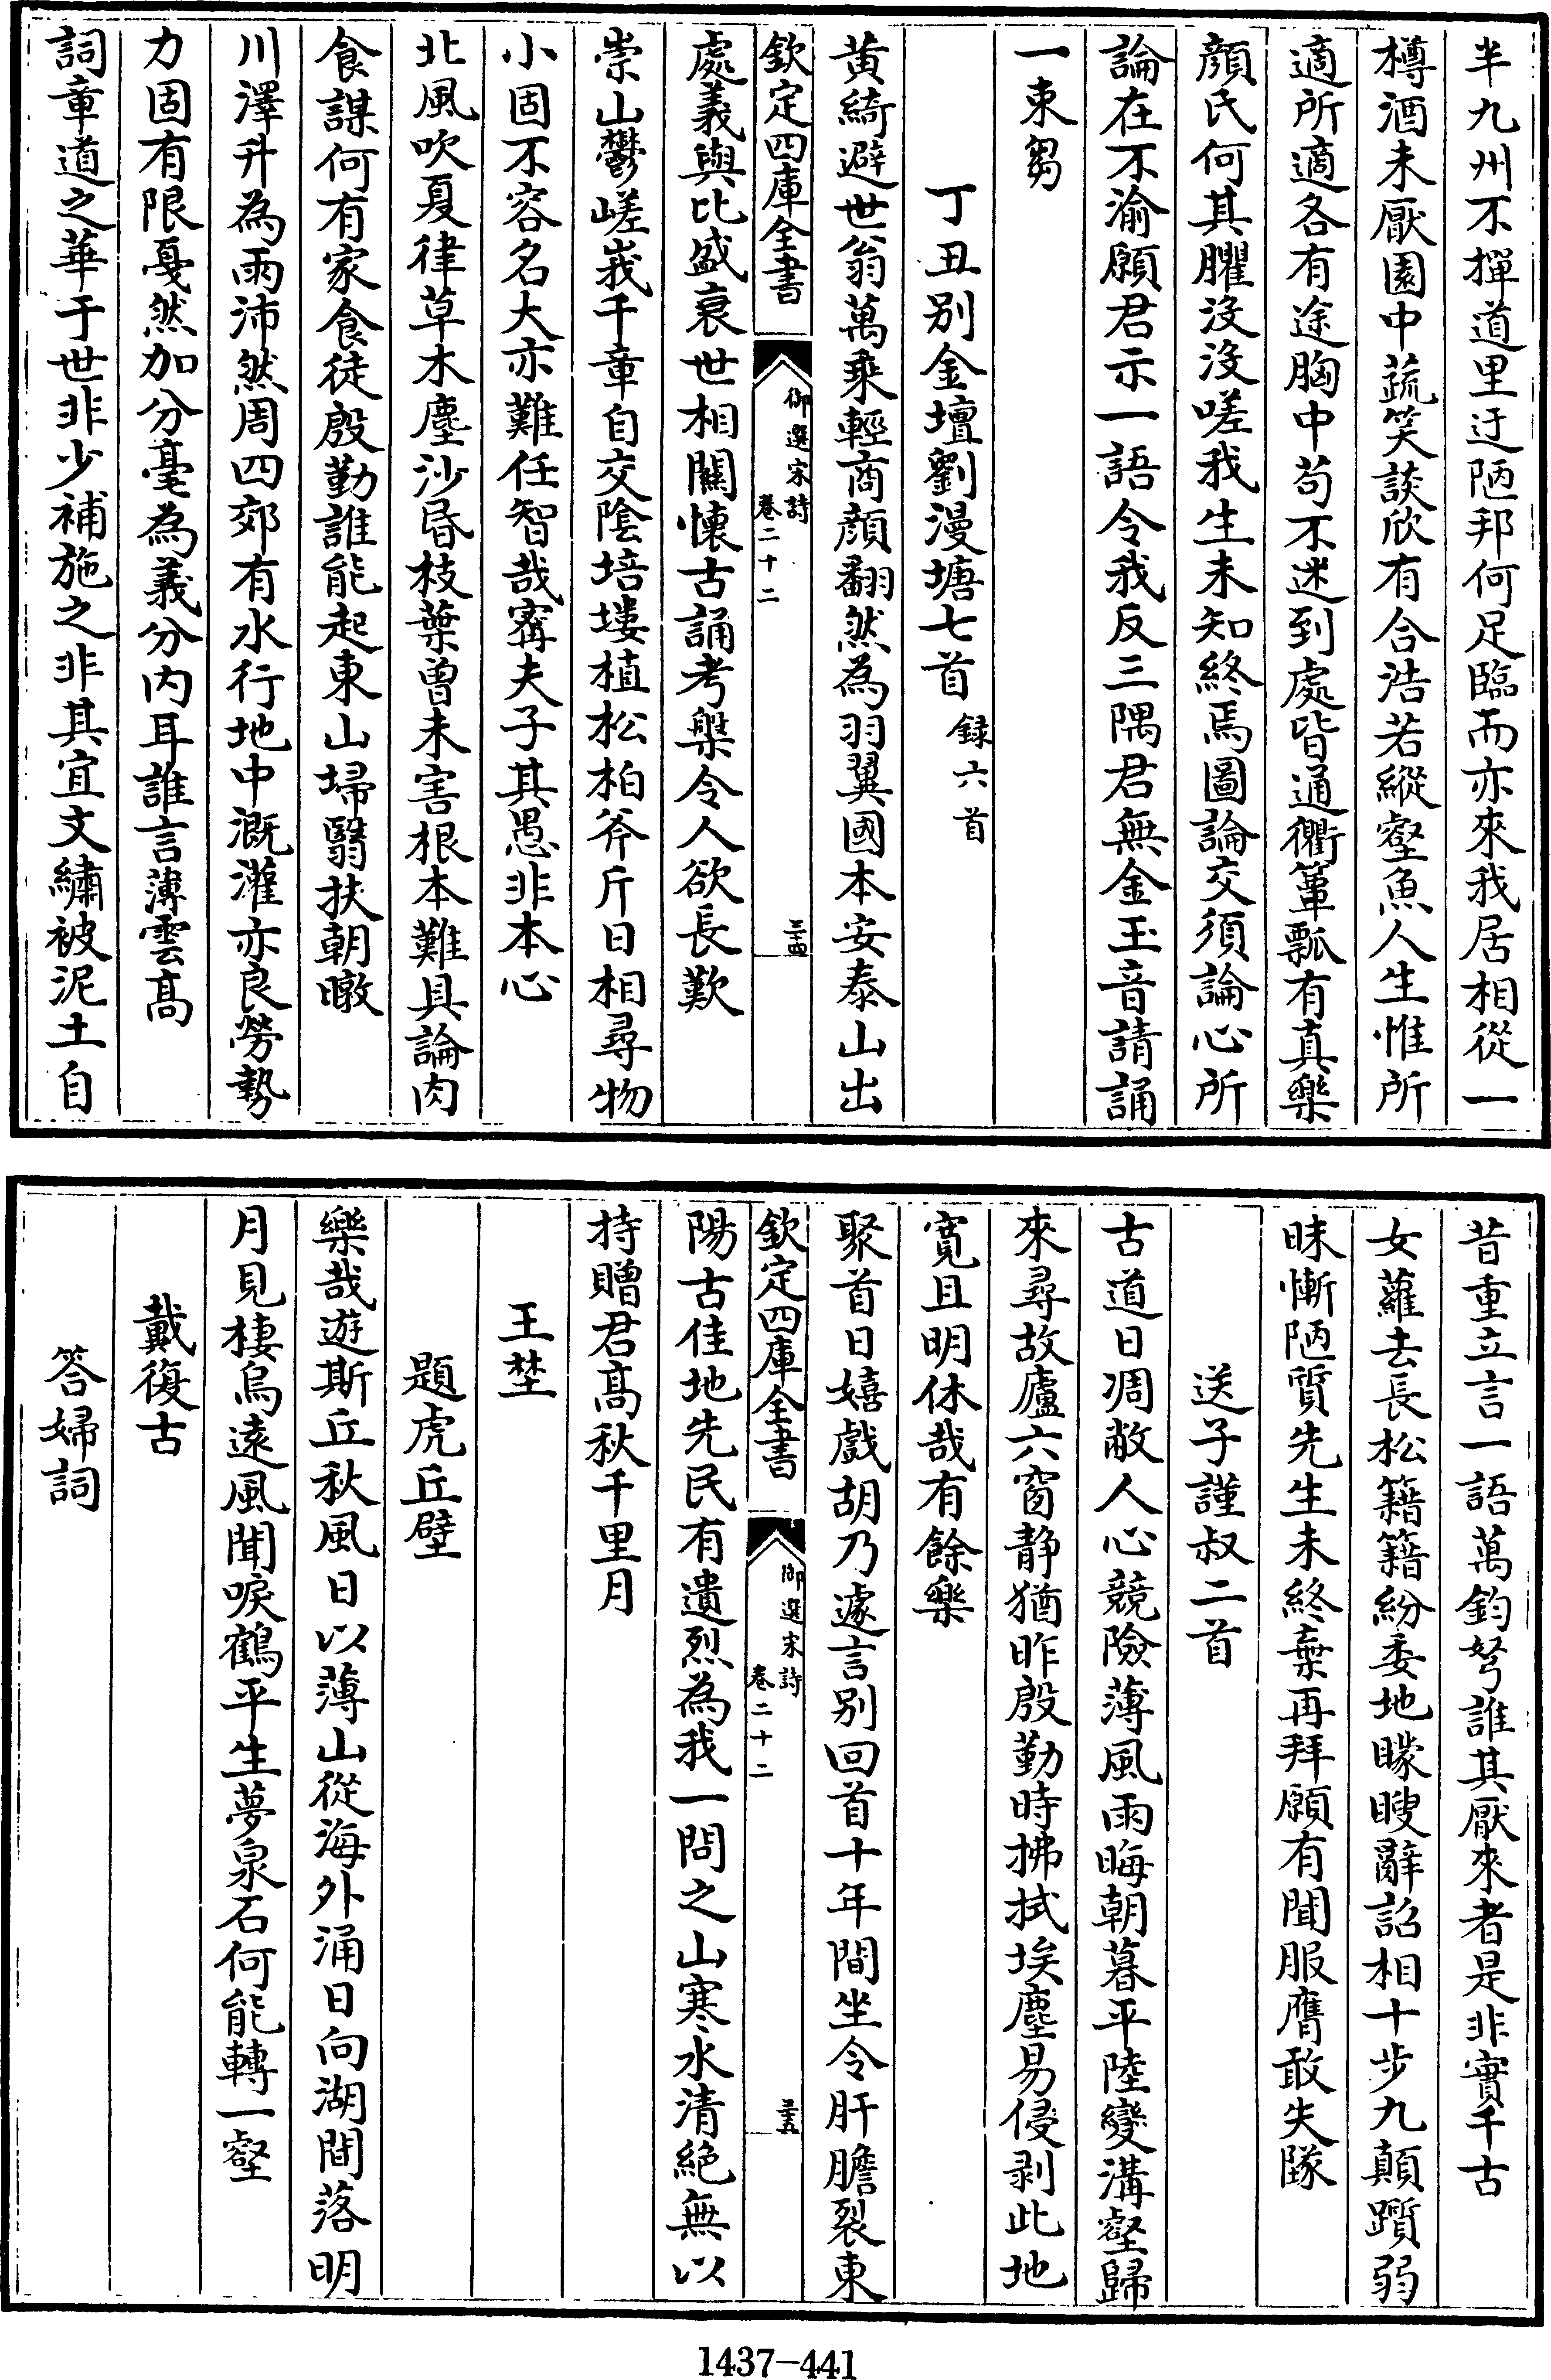 半九州不撣道里迂陋邦何足臨而亦來我居相從一
樽酒未厭園中蔬笑談欣有合浩若縱壑魚人生惟所
適所適各有途胸中苟不迷到處皆通衢簞瓢有真樂
顔氏何其臞沒沒嗟我生未知終焉圖論交須論心所
論在不渝願君示一語令我反三隅君無金玉音請誦
一束芻
丁丑别金壇劉漫塘七首録六首
黄綺避世翁萬乗輕商顔翻然為羽翼國本安泰山出
欽定四庫全書
御選宋詩
卷二十二
三十四
處義與比盛衰世相關懷古誦考槃令人欲長歎
崇山鬱嵯峩千章自交陰培塿植松柏斧斤日相尋物
小固不容名大亦難任智哉甯夫子其愚非本心
北風吹夏律草木塵沙昬枝葉曽未害根本難具論肉
食謀何有家食徒殷勤誰能起東山埽翳扶朝暾
川澤升為雨沛然周四郊有水行地中溉灌亦良勞勢
力固有限戞然加分毫為義分内耳誰言薄雲髙
詞章道之華于世非少補施之非其宜文繡被泥土自
昔重立言一語萬鈞弩誰其厭來者是非實千古
女蘿去長松籍籍紛委地矇瞍辭詔相十步九顛躓弱
昧慚陋質先生未終棄再拜願有聞服膺敢失隊
送子謹叔二首
古道日凋敝人心競險薄風雨晦朝暮平陸變溝壑歸
來尋故廬六窗静猶昨殷勤時拂拭埃塵易侵剥此地
寛且明休哉有餘樂
聚首日嬉戯胡乃遽言别回首十年間坐令肝膽裂東
欽定四庫全書
御選宋詩
卷二十二
三十五
陽古佳地先民有遺烈為我一問之山寒水清絶無以
持贈君髙秋千里月
王埜
題虎丘壁
樂哉遊斯丘秋風日以薄山從海外涌日向湖間落明
月見棲烏遠風聞唳鶴平生夢泉石何能轉一壑
戴復古
答婦詞
1437-441